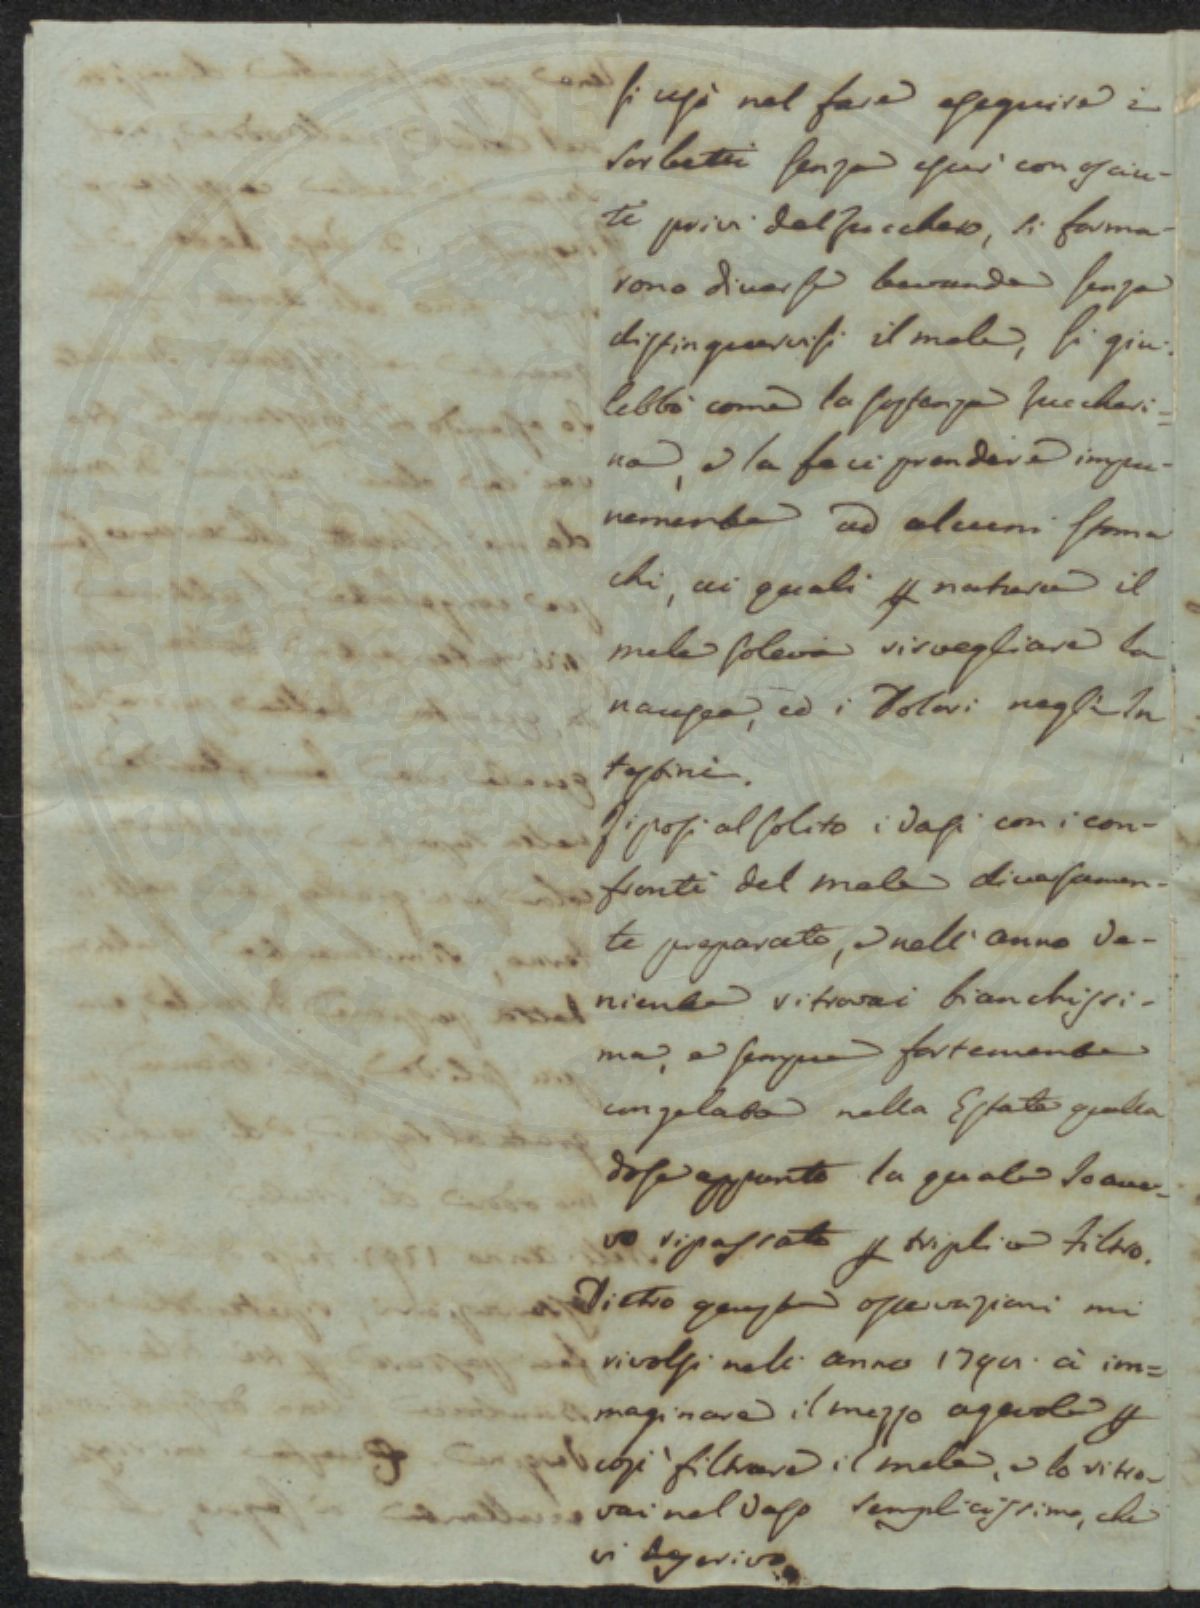 Si usò nel fare eseguire i
sorbetti senza esser conosciu-
ti privi del Zucchero, si forma-
rono diverse bevande senza
distinguervisi il mele, si giu-
lebbò come la sostanza Zuccheri-
na, e la feci prendere impu-
nemente ad alcuni stoma
chi, ai quali p natura il
mele soleva risvegliare la
nausea, ed i Dolori negl'In
testini.
Riposi al solito i Vasi con i con-
fronti del mele diversamen-
te preparato, e nell'anno ve-
niente ritrovai bianchissi-
ma, e sempre fortemente
congelata nella Estate quella
dose appunto la quale Io ave-
vo ripassata p triplice Filtro.
Dietro queste osservazioni mi
rivolsi nell'anno à im-
maginare il mezzo agevole p
così filtrare il mele, e lo ritro-
vai nel Vaso semplicissimo, che
vi descrivo.